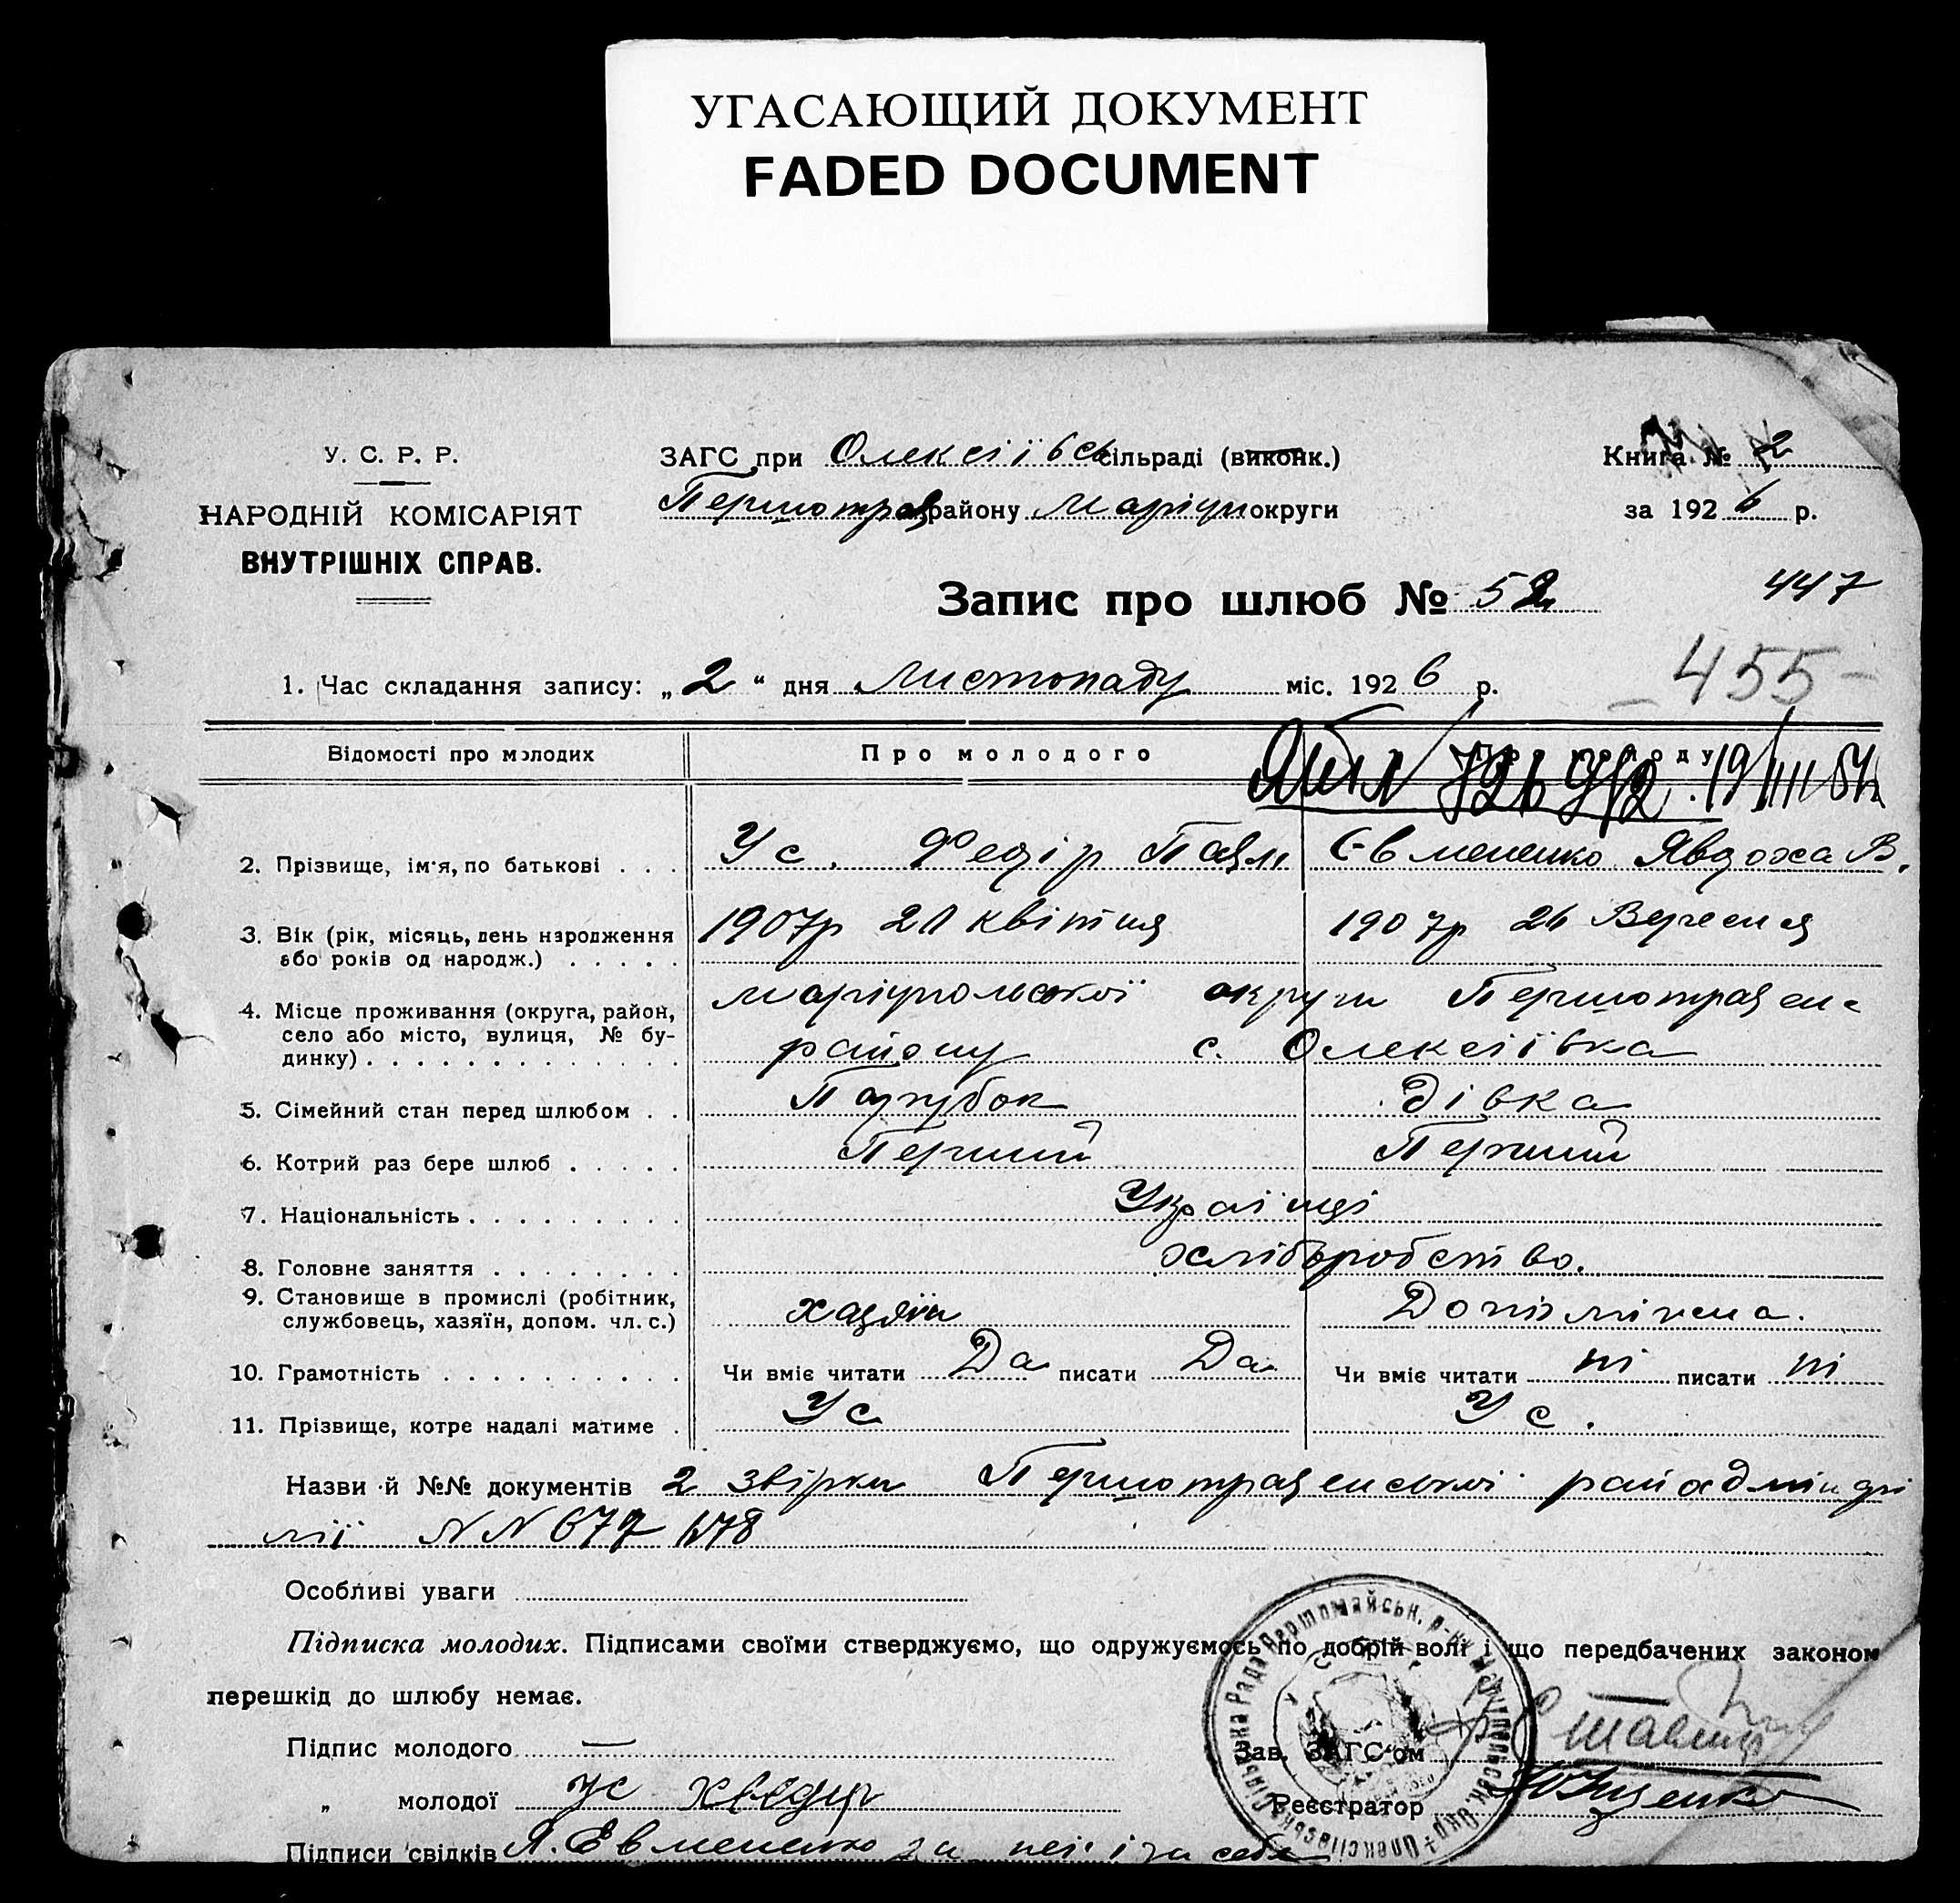 УГАСАЮЩИЙ ДОКУМЕНТ
FADED DOCUMENT
У. С. Р. Р.
НАРОДНІЙ КОМІСАРІЯТ
ВНУТРІШНІХ СПРАВ.
ЗАГС при Олексіївсь сільраді (виконк.)
Першотрав району Маріуп округи
Книга № 2
за 1926 р.
Запис про шлюб № 52
447
455
1. Час складання запису: „2“ дня Листопаду міс. 1926 р.
Відомості про молодих Про молодого
2. Прізвище, ім'я, по батькові . . . Ус. Федір Павл Євмененко Явдоха В.
3. Вік (рік, місяць, день народження 1907р 21 квітня 1907р 26 Вересня
або років од народж.) . . . . .
4. Місце проживання (округа, район, Маріупольської округи Першотравен-
село або місто, вулиця, № бу- району с. Олексіївка
динку) . . . . . . . . . . . .
5. Сімейний стан перед шлюбом . . Парубок дівка
6. Котрий раз бере шлюб . . . . . Перший Перший
7. Національність . . . . . . . . . Українці
8. Головне заняття . . . . . . . . хліборобство.
9. Становище в промислі (робітник, хазяїн
службовець, хазяїн, допом. чл. с.)
10. Грамотність . . . . . . . . . . Чи вміє читати Да писати Да Чи вміє читати ні писати ні
11. Прізвище, котре надалі матиме . Ус Ус.
Назви й №№ документів 2 звірки Першотравенської райадміндрі
лії NN 677 678
Особливі уваги
Підписка молодих. Підписами своїми стверджуємо, що одружуємось по добрій волі і що передбачених законом
перешкід до шлюбу немає.
Підпис молодого —
„ молодої Ус Хведир
Підписи свідків Я. Евмененко за неі і за себе
Зав. ЗАГС'ом
Реєстратор
Олексіївська Сільська Рада Першомайськ. р-ну Маріупільськ. Окр.